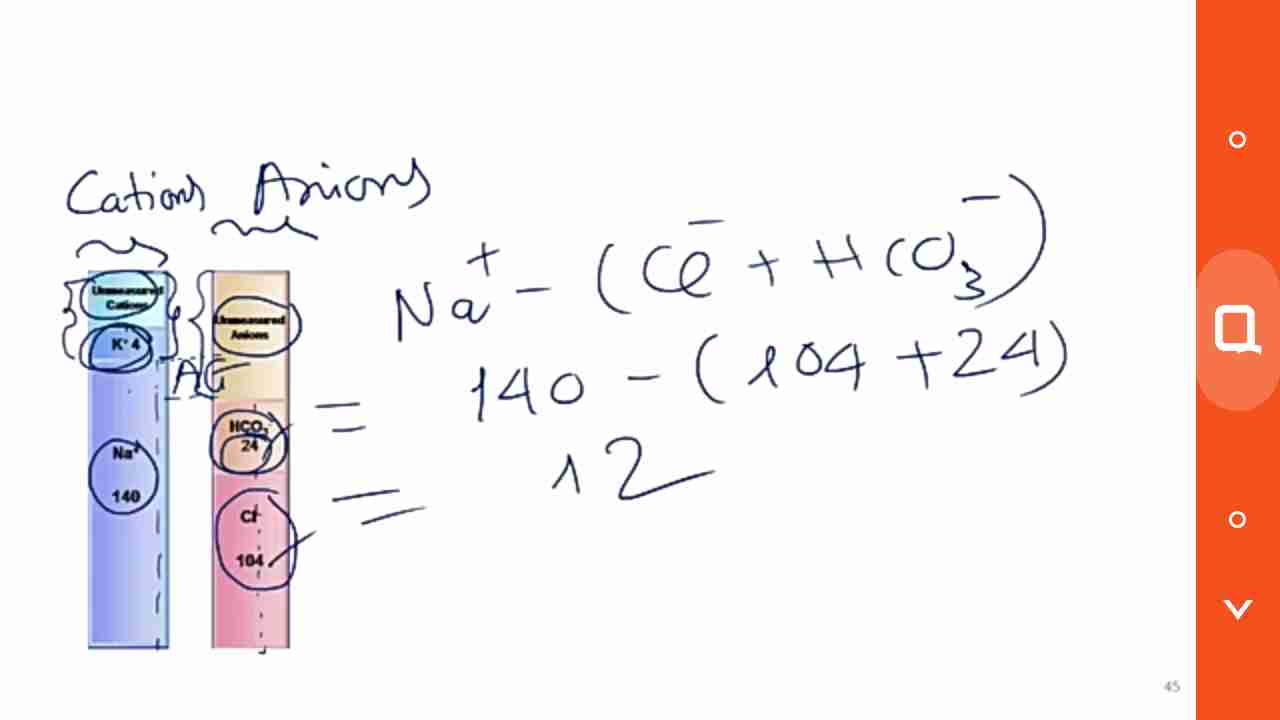 Cations Anions
Unmeasured
Cations
K⁺ 4
Na⁺
140
AG
Unmeasured
Anions
HCO₃⁻
24
Cl⁻
104
Na⁺ - (Cl⁻ + HCO₃⁻)
= 140 - (104 + 24)
= 12
45